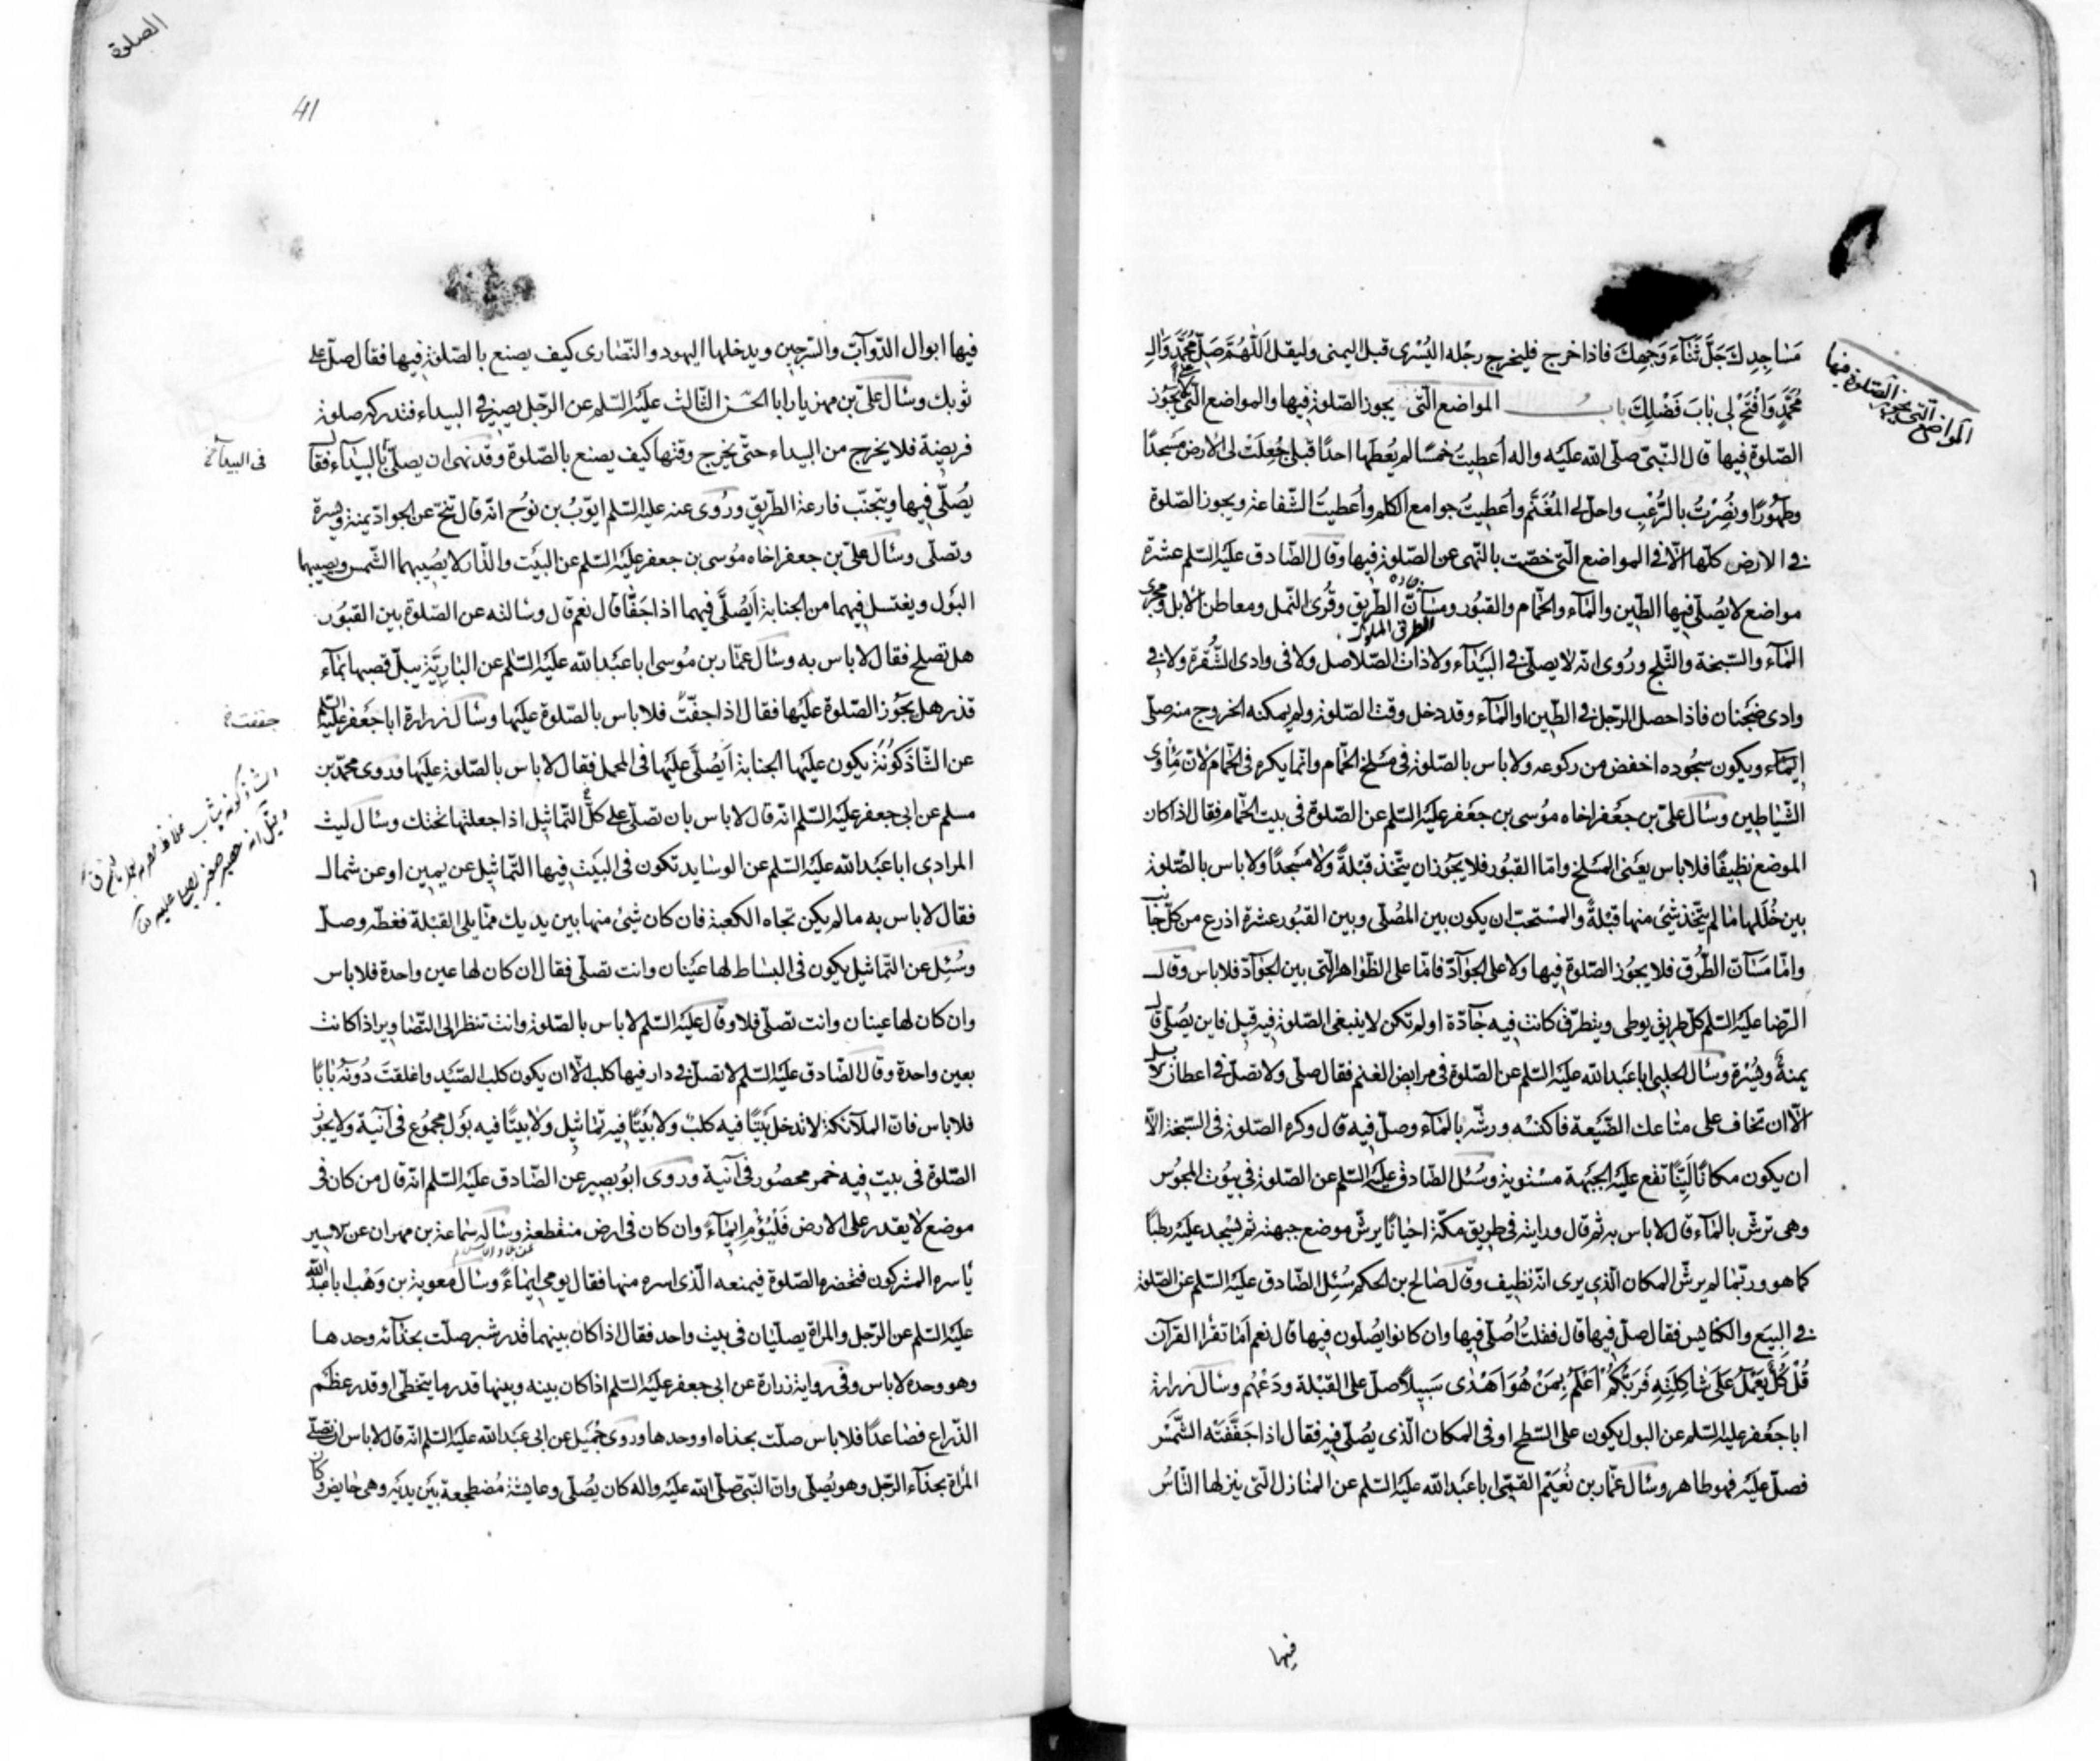 مَسٰاجِدِكَ جَلَّ ثَنٰآءُ وَجْهِكَ فاذا خرج فليخرج رجْله اليُسْرى قبل اليمنى وليقل اَللّٰهُمَّ صَلِّ عَلٰى مُحَمَّدٍ وَاٰلِ
مُحَمَّدٍ وَافْتَحْ لى بٰابَ فَضْلِكَ باب المواضع الّتى يجوز الصّلوة فيها والمواضع الّتى لا يجُوز
الصّلوة فيها قال النّبىّ صلى الله عليه واله اُعطيتُ خمْسًا لم يُعطَها احدًا قبلى جُعِلَتْ لى الارض مَسْجدًا
وطَهُورًا ونُصِرْتُ بالرُّعْبِ واحلّ لى المُغْنَم واُعطِيتُ جوامع الكلم واُعطيتُ الشّفاعة ويجوز الصّلوة
فى الارض كلّها الّا فى المواضع الّتى خصّت بالنّهى عن الصّلوة فيها وقال الصّادق عليه السّلم عشرة
مواضع لا يُصلّى فيها الطّين والمآء والحمّام والقبُور ومسآنّ الطّريق وقُرى النّمل ومعاطن الابل ومجرى
المٰآء والسّبخة والثّلج ورُوى انّه لا يصلّى فى البَيْدٰآء ولا ذات الصّلاصل ولا فى وادى الشُّقرة ولا فى
وادى ضَجْنان فاذا حصل الرّجل فى الطّين او المٰآء وقد دخل وقت الصّلوة ولم يمكنه الخروج منه صلّى
ايمٰآء ويكون سجُوده اخفض من ركوعه ولا باس بالصّلوة فى مَسْلخ الحمّام وانّما يكره فى الحمّام لانّه مٰاْوى
الشّيٰاطين وسٰال علىّ بن جَعْفر اخاه مُوسى بن جَعْفر عليه السّلم عن الصّلوة فى بيت الحمّام فقال اذا كان
الموضع نظيفًا فلا باس يعنى المَسْلخ وامّا القبُور فلا يجُوز ان يتّخذ قبْلةً ولا مَسْجدًا ولا باس بالصّلوة
بين خُلَلها مٰا لم يتّخذ شئ منها قبْلةً والمستحبّ ان يكون بين المصُلّى وبين القبُور عشرة اذرع من كلّ جٰانب
وامّا مَسٰآنّ الطُّرق فلا يجُوز الصّلوة فيها ولا على الجوٰآدّ فامّا على الظّوٰاهر الّتى بين الجوٰآدّ فلا باس وقال
الرّضا عليه السّلم كلّ طريق يوطى ويتطرّق كانت فيه جٰآدّة او لم تكن لا ينبغى الصّلوة فيه قيل فاين يُصلّى قال
يمنةً ويُسْرة وسٰال الحلبى ابا عبد الله عليه السّلم عن الصّلوة فى مرابض الغنم فقال صلّى ولا تصلّ فى اعطان الابل
الّا ان تخاف على متٰاعك الضَّيْعة فاكنسْه ورشّه بالمٰآء وصلّ فيه قال وكره الصّلوة فى السّبخة الّا
ان يكون مكانًا ليّنًا تقع عليه الجبْهة مسْتوية وسُئل الصّادق عليه السّلم عن الصّلوة فى بيُوت المجُوس
وهى ترشّ بالمٰآء قال لا باس به ثم قال ورايته فى طريق مكّة احيانًا يرشّ موضع جبهته ثم يَسْجد عليه رطبًا
كما هو وربّمٰا لم يرشّ المكان الّذى يرى انّه نظيف وقال صٰالح بن الحكم سُئِل الصّادق عليه السّلم عن الصّلوة
فى البيَع والكنٰايس فقال صلّ فيها قال فقلتُ اُصلّى فيها وان كانوا يُصلّون فيها قال نعم اَمٰا تقْرٰا القرآن
قُلْ كُلٌّ يَعْمَلُ عَلٰى شٰاكِلَتِهِ فَرَبُّكُمْ اَعْلَمُ بِمَنْ هُوَ اَهْدٰى سَبيلًا صلّ على القبْلة ودَعْهُم وسٰال زرارة
ابا جَعْفر عليه السّلم عن البول يكون على السّطح او فى المكان الّذى يُصلّى فيه فقال اذا جَفَّفَتْه الشّمسُ
فصلّ عليه فهو طاهر وسٰال عمّار بن نُعَيم القمّى ابا عبد الله عليه السّلم عن المنٰازل الّتى ينزلها النّاسُ
فيها
المواضع الّتى يجوز الصّلوة فيها
الصلوة
41
فيها ابوال الدّوآبّ والسّرجين ويدخلها اليهود والنّصٰارى كيف يصنع بالصّلوة فيها فقال صلّ على
ثوبك وسٰال علىّ بن مهزيار ابا الحسن الثّالث عليه السّلم عن الرّجل يصير فى البيداء فتدركه صلوة
فريضة فلا يخرج من البيداء حتّى يخرج وقتها كيف يصنع بالصّلوة وقد نهى ان يصلّى بالبيدٰآء فقال
يُصلّى فيها ويتجنّب قارعة الطّريق ورُوى عنه عليه السّلم ايّوبُ بن نوُح انّه قال تنحّ عن الجوادّ يمنة ويسرة
وتصلّى وسٰال علىّ بن جعفر اخاه مُوسى بن جعفر عليه السّلم عن البيْت والدّار لا يصُيبهما الشّمس ويصيبها
البَوْل ويغتسل فيهما من الجنابة اَيُصلّى فيهما اذا جَفّا قال نعم قال وسالته عن الصّلوة بين القبُور
هل تصلح فقال لا باس به وسٰال عمّار بن مُوسى ابا عبد الله عليه السّلم عن البٰاريّة يبلّ قصبها بمٰآء
قذر هل يجُوز الصّلوة عليها فقال اذا جفّتْ فلا باس بالصّلوة عليها وسٰال زرارة ابا جَعْفر عليه السّلم
عن الشّاذَكُونَة يكون عليها الجنابة اَيُصلّى عليها فى المحمل فقال لا باس بالصّلوة عليها وروى محمّد بن
مسلم عن ابى جعفر عليه السّلم انّه قال لا باس بان تصلّى على كلّ التّماثيل اذا جعلتها تحتك وسٰال ليث
المرادى ابا عبد الله عليه السّلم عن الوسٰايد تكون فى البيْت فيها التّماثيل عن يمين او عن شمال
فقال لا باس به مٰا لم يكن تجاه الكعبة فان كان شئ منها بين يديك ممّا يلى القبْلة فغطّه وصلّ
وسُئِل عن التّماثيل يكون فى البسٰاط لها عَيْنان وانت تصلّى فقال ان كان لها عين واحدة فلا باس
وان كان لها عينان وانت تصلّى فلا وقال عليه السّلم لا باس بالصّلوة وانت تنظر الى التّصٰاوير اذا كانت
بعين واحدة وقال الصّادق عليه السّلم لا تصلّ فى دار فيها كلب الّا ان يكون كلب الصّيْد واغلقتَ دُونَهُ بٰابًا
فلا باس فانّ الملٰآئكة لا تدخل بَيْتًا فيه كلبٌ ولا بَيْتًا فيه تماثيل ولا بيتًا فيه بَوْل مجمُوع فى آنية ولا يجوز
الصّلوة فى بيت فيه خمر محصُور فى آنية وروى ابُو بصير عن الصّادق عليه السّلم انّه قال من كان فى
موضع لا يقدر على الارض فَلْيُؤْمِ ايمٰآءً وان كان فى ارض منقطعة وسٰاله سمٰاعة بن مهران عن الاسير
يٰاسره المشركون فتحضره الصّلوة فيمنعه الّذى اسره منها فقال يومى ايمٰاءً وسٰال معوية بن وَهْب ابا عبد الله
عليه السّلم عن الرّجل والمراة يصلّيان فى بيت واحد فقال اذا كان بينهما قدر شبر صلّت بحذٰآئه وحدها
وهو وحده لا باس وفى رواية زرارة عن ابى جعفر عليه السّلم اذا كان بينه وبينها قدر ما يتخطّى او قدر عظْم
الذّراع فصٰاعدًا فلا باس صلّت بحذاه او وحدها وروى جَميل عن ابى عبد الله عليه السّلم انّه قال لا باس ان تصلّى
المراة بحذٰآء الرّجل وهو يُصلّى وانّ النّبىّ صلّى الله عليه واله كان يُصلّى وعايشة مُضطجعة بيْن يديْه وهى حٰايض وكان
فى البيدآء خ
جففت خ